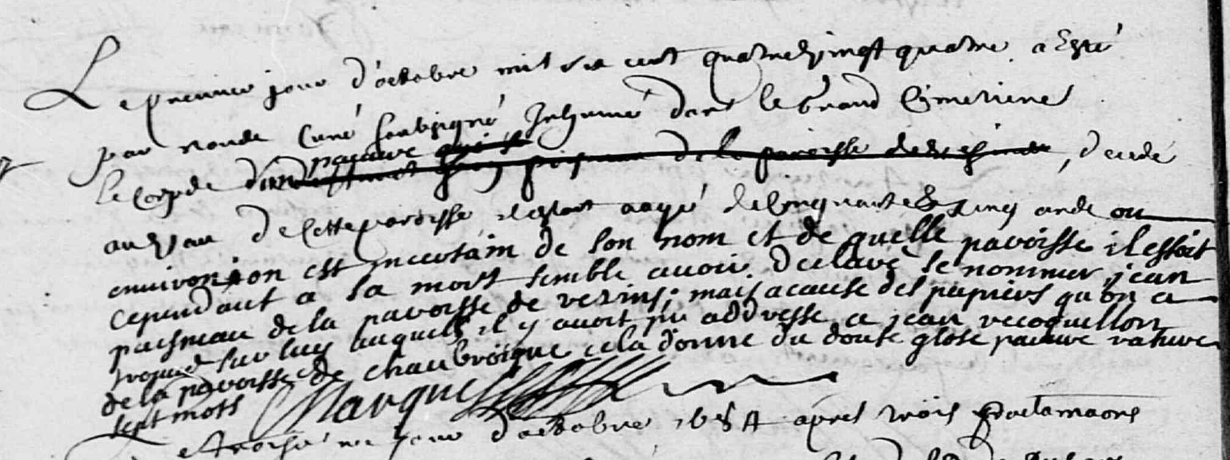 Le premier jour d'octobre mil six cent quatrevingt quatre a esté
par nous Curé soubsigné Inhumé dans le Grand Cimetiere
le corps d'un pauvre de la paroisse de decedé
au de cette paroisse il estoit aagé de Cinquante & Cinq ans ou
environ on est incertain de son nom et de quelle paroisse il estoit
cependant a sa mort semble avoir declaré se nommer jean
paisneau de la paroisse de vezins; mais acause des papiers qu'on a
trouvé sur luy auquels il y avoit pr addresse a jean recoquillon
de la paroisse de chanbroigne cela donne du doute glose pauvre rature
sept mots
jour d'octobre 1684 apres trois proclamaons